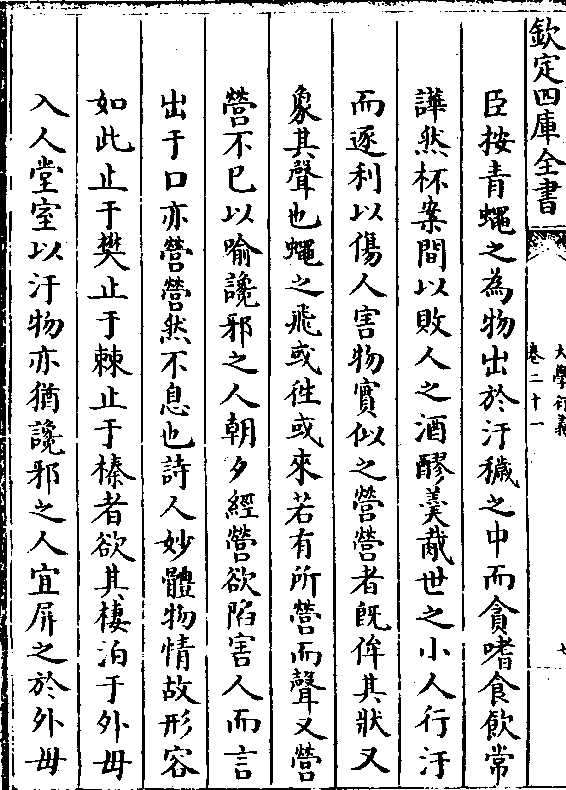 欽定四庫全書
大學衍義
卷二十一
七
臣按青蠅之為物出於汙穢之中而貪嗜食飲常
譁然杯案間以敗人之酒醪羹胾世之小人行汙
而逐利以傷人害物實似之營營者既侔其狀又
象其聲也蠅之飛或徃或來若有所營而聲又營
營不已以喻讒邪之人朝夕經營欲陷害人而言
出于口亦營營然不息也詩人妙體物情故形容
如此止于樊止于棘止于榛者欲其棲泊于外毋
入人堂室以汙物亦猶讒邪之人宜屏之於外毋